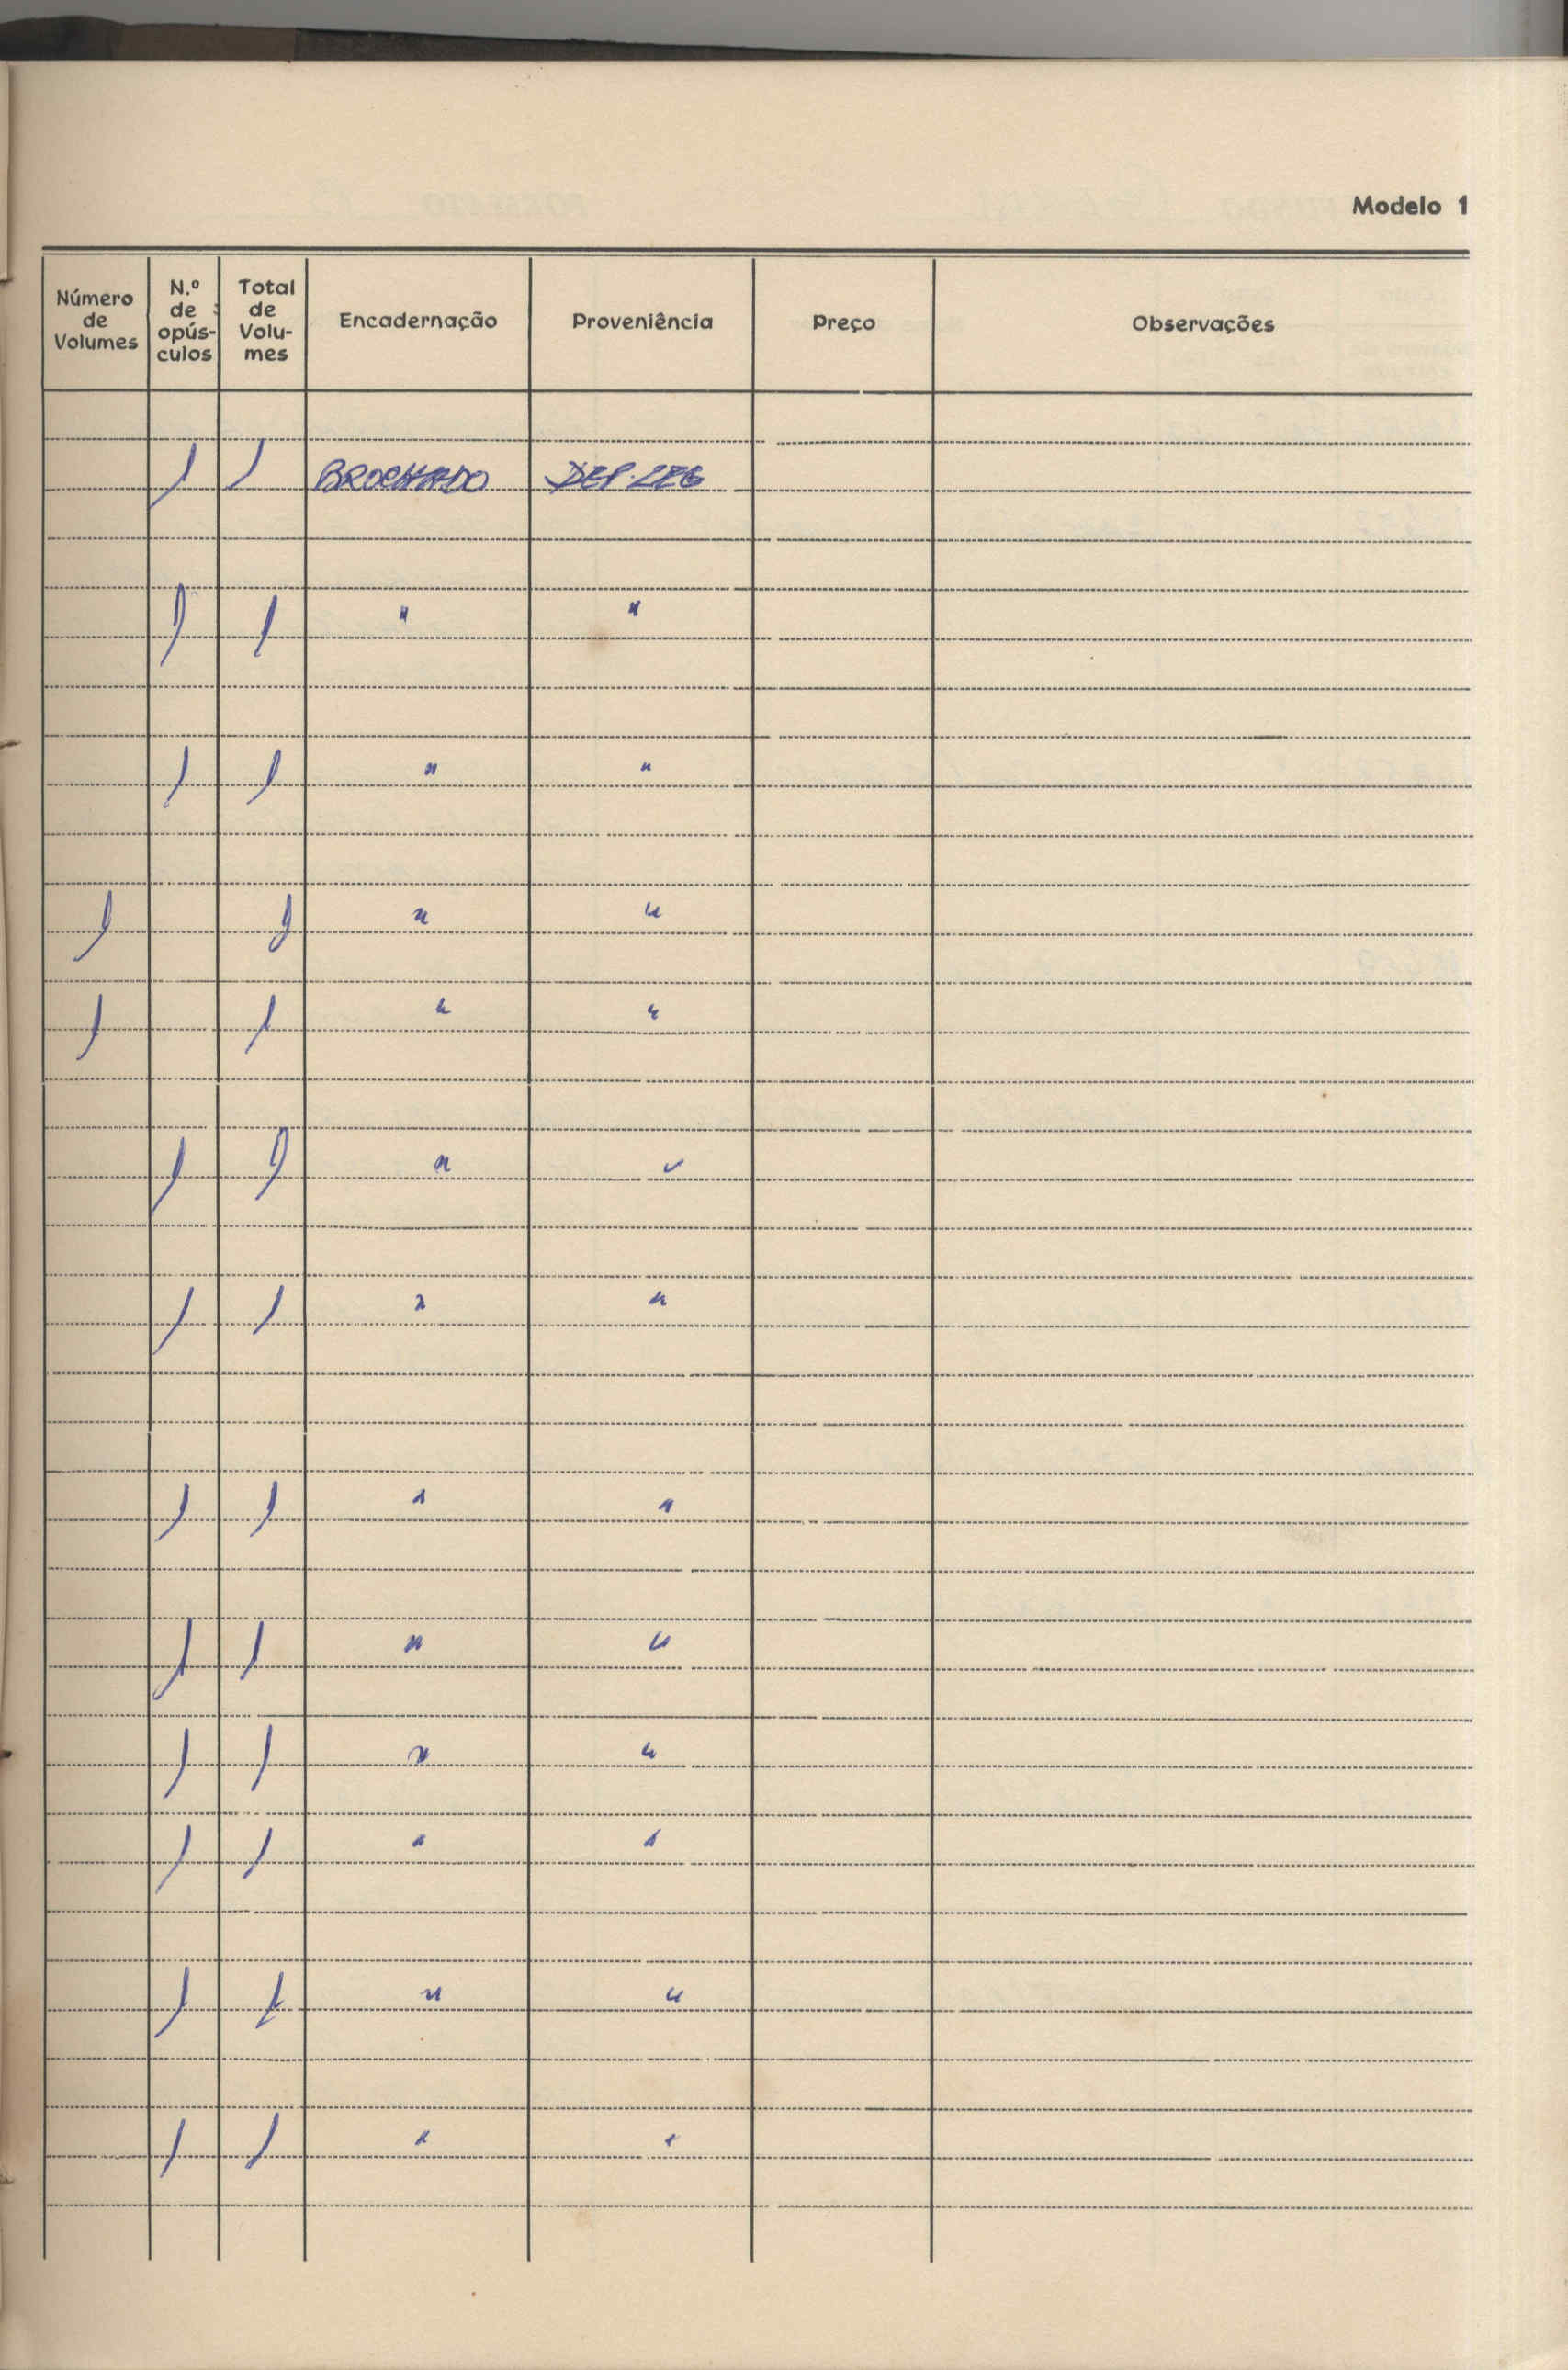 Modelo 1
Número de Volumes N.º de opús-culos Total de Volu-mes Encadernação Proveniência Preço Observações
1 1 BROCHADO DEP. LEG
1 1 " "
1 1 " "
1 1 " "
1 1 " "
1 1 " "
1 1 " "
1 1 " "
1 1 " "
1 1 " "
1 1 " "
1 1 " "
1 1 " "